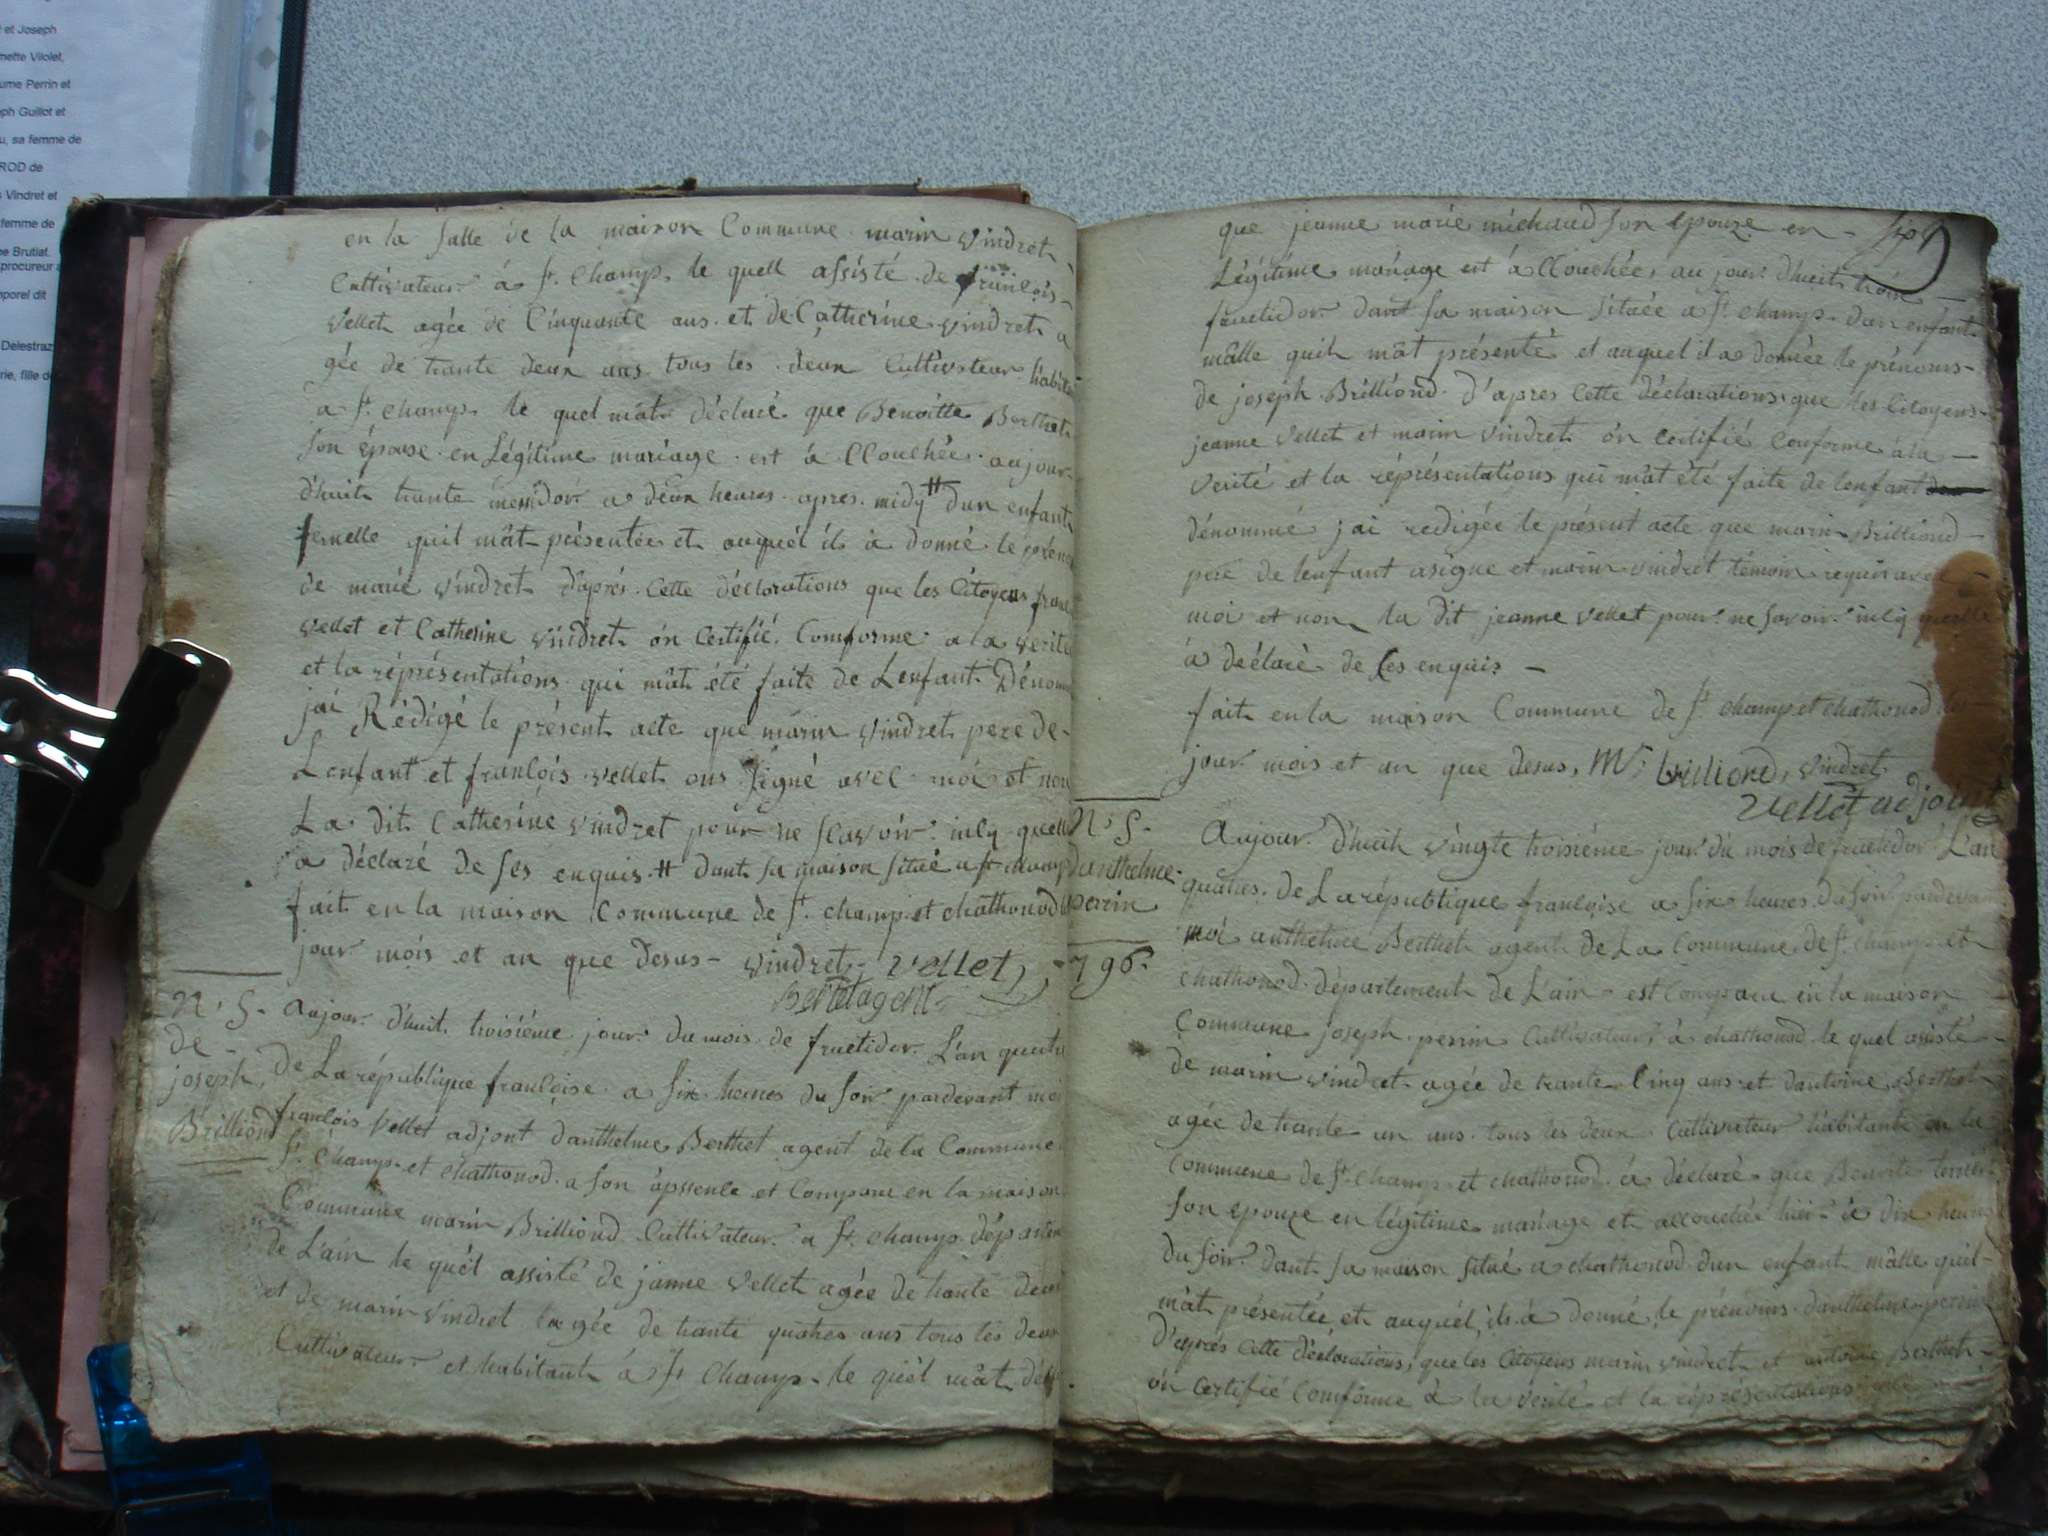 et Joseph
nette Vilolet,
ume Perrin et
ph Guillot et
u, sa femme de
ROD de
s Vindret et
femme de
pe Brutiat.
procureur
mporel dit
Delestraz
rie, fille de
en la salle de la maison Commune marin vindret
Cultivateur à St. Champ. le quell assisté de françois
vellet agée de Cinquante ans et de Catherine vindret a
gée de trante deux ans tous les deux Cultivateur habita
a St. Champ. le quel mât déclaré que Benoitte Berthet
son épouse en Légitime mariage est à llouchée aujour
d'huit trante messidor a deux heures apres midy # dun enfant
femelle quil mât présentée et auquél ils à donné le préno
de marie vindret d'aprés Cette déclarations que les Citoyens franc
vellet et Catherine vindret on Certifié Comforme a la verité
et la réprésentations qui mât été faite de Lenfant Dénom
jai Rédigé le présent acte que marin vindret pere de
Lenfant et françois vellet ons signé avec moi et non
La dit Catherine vindret pour ne sçavoir inly quell
a déclaré de ses enquis # dant sa maison situé a St champ
fait en la maison Commune de St. champ et chathonod
jour mois et an que desus - vindret vellet
Bertet agent
N. S. de joseph Brilliond
Aujour d'huit troisiéme jour du mois de fructidor L'an quatre
de La république françoise a six heures du soir pardevant moi
françois vellet adjont danthelme Berthet agent de la Commune
St. Champ et chathonod a son apssence et Comparu en la maison
Commune marin Brilliond Cultivateur a St. champ départem
de L'ain le quél assisté de janne vellet agée de trante deux
et de marin vindret lagée de trante quatres ans tous les deux
Cultivateur et habitant à St Champ le quél mât décl
six
que jeanne marie michaud son epouze en
Légitime mariage est à llouchée, au jour d'huit trois
fructidor dant sa maison située a St. champ dun enfant
mâlle quil mât présenté et auquel il a donnée le prénoms
de joseph Brilliond d'apres Cette déclarations que les Citoyens
jeanne vellet et marin vindret on certifié Conforme à la
verité et la réprésentations qui mât été faite de lenfant
dénommé jai redigée le présent acte que marin Brilliond
pere de lenfant asigne et marin vindret témoin requis avec
moi et non la dit jeanne vellet pour ne savoir inly quelle
à déclaré de ses enquis -
fait en la maison Commune de St. champ et chathonod les
jour mois et an que desus, M. brilliond, vindret
vellet adjoint
N. S. danthelme perrin
796.
Aujour d'huit vingte troisiéme jour du mois de fructidor L'an
quatres de La république françoise a six heures du soir pardevan
moi anthelme Berthet agent de La Commune de St. champ et
chathonod département de L'ain est Comparu en la maison
Commune joseph perrin Cultivateur à chathonod le quel assisté
de marin vindret agée de trante Cinq ans et dantoine Berthet
agée de trante un ans tous les deux Cultivateur habitants en la
Commune de St. champ et chathonod à déclaré que Benoite
son epouze en légitime mariage et accouchée hier à dix heures
du soir dant sa maison situé a chathonod dun enfant mâlle quil
mât présentée et auquél ils à donné le prénoms danthelme perrin
D'aprés Cette déclarations, que les Citoyens marin vindret et antoine Berthet
on Certifié Comforme à la verité et la réprésentations